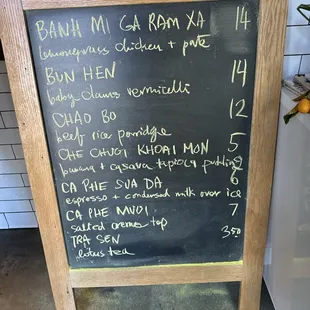 BANH MI GA RAM XA 14
lemongrass chicken + pate
BUN HEN 14
baby clams vermicelli
CHAO BO 12
beef rice porridge
CHE CHUOI KHOAI MON 5
banana + casava tapioca pudding
CA PHE SUA DA 6
espresso + condensed milk over ice
CA PHE MUOI 7
salted creme top
TRA SEN 3.50
lotus tea